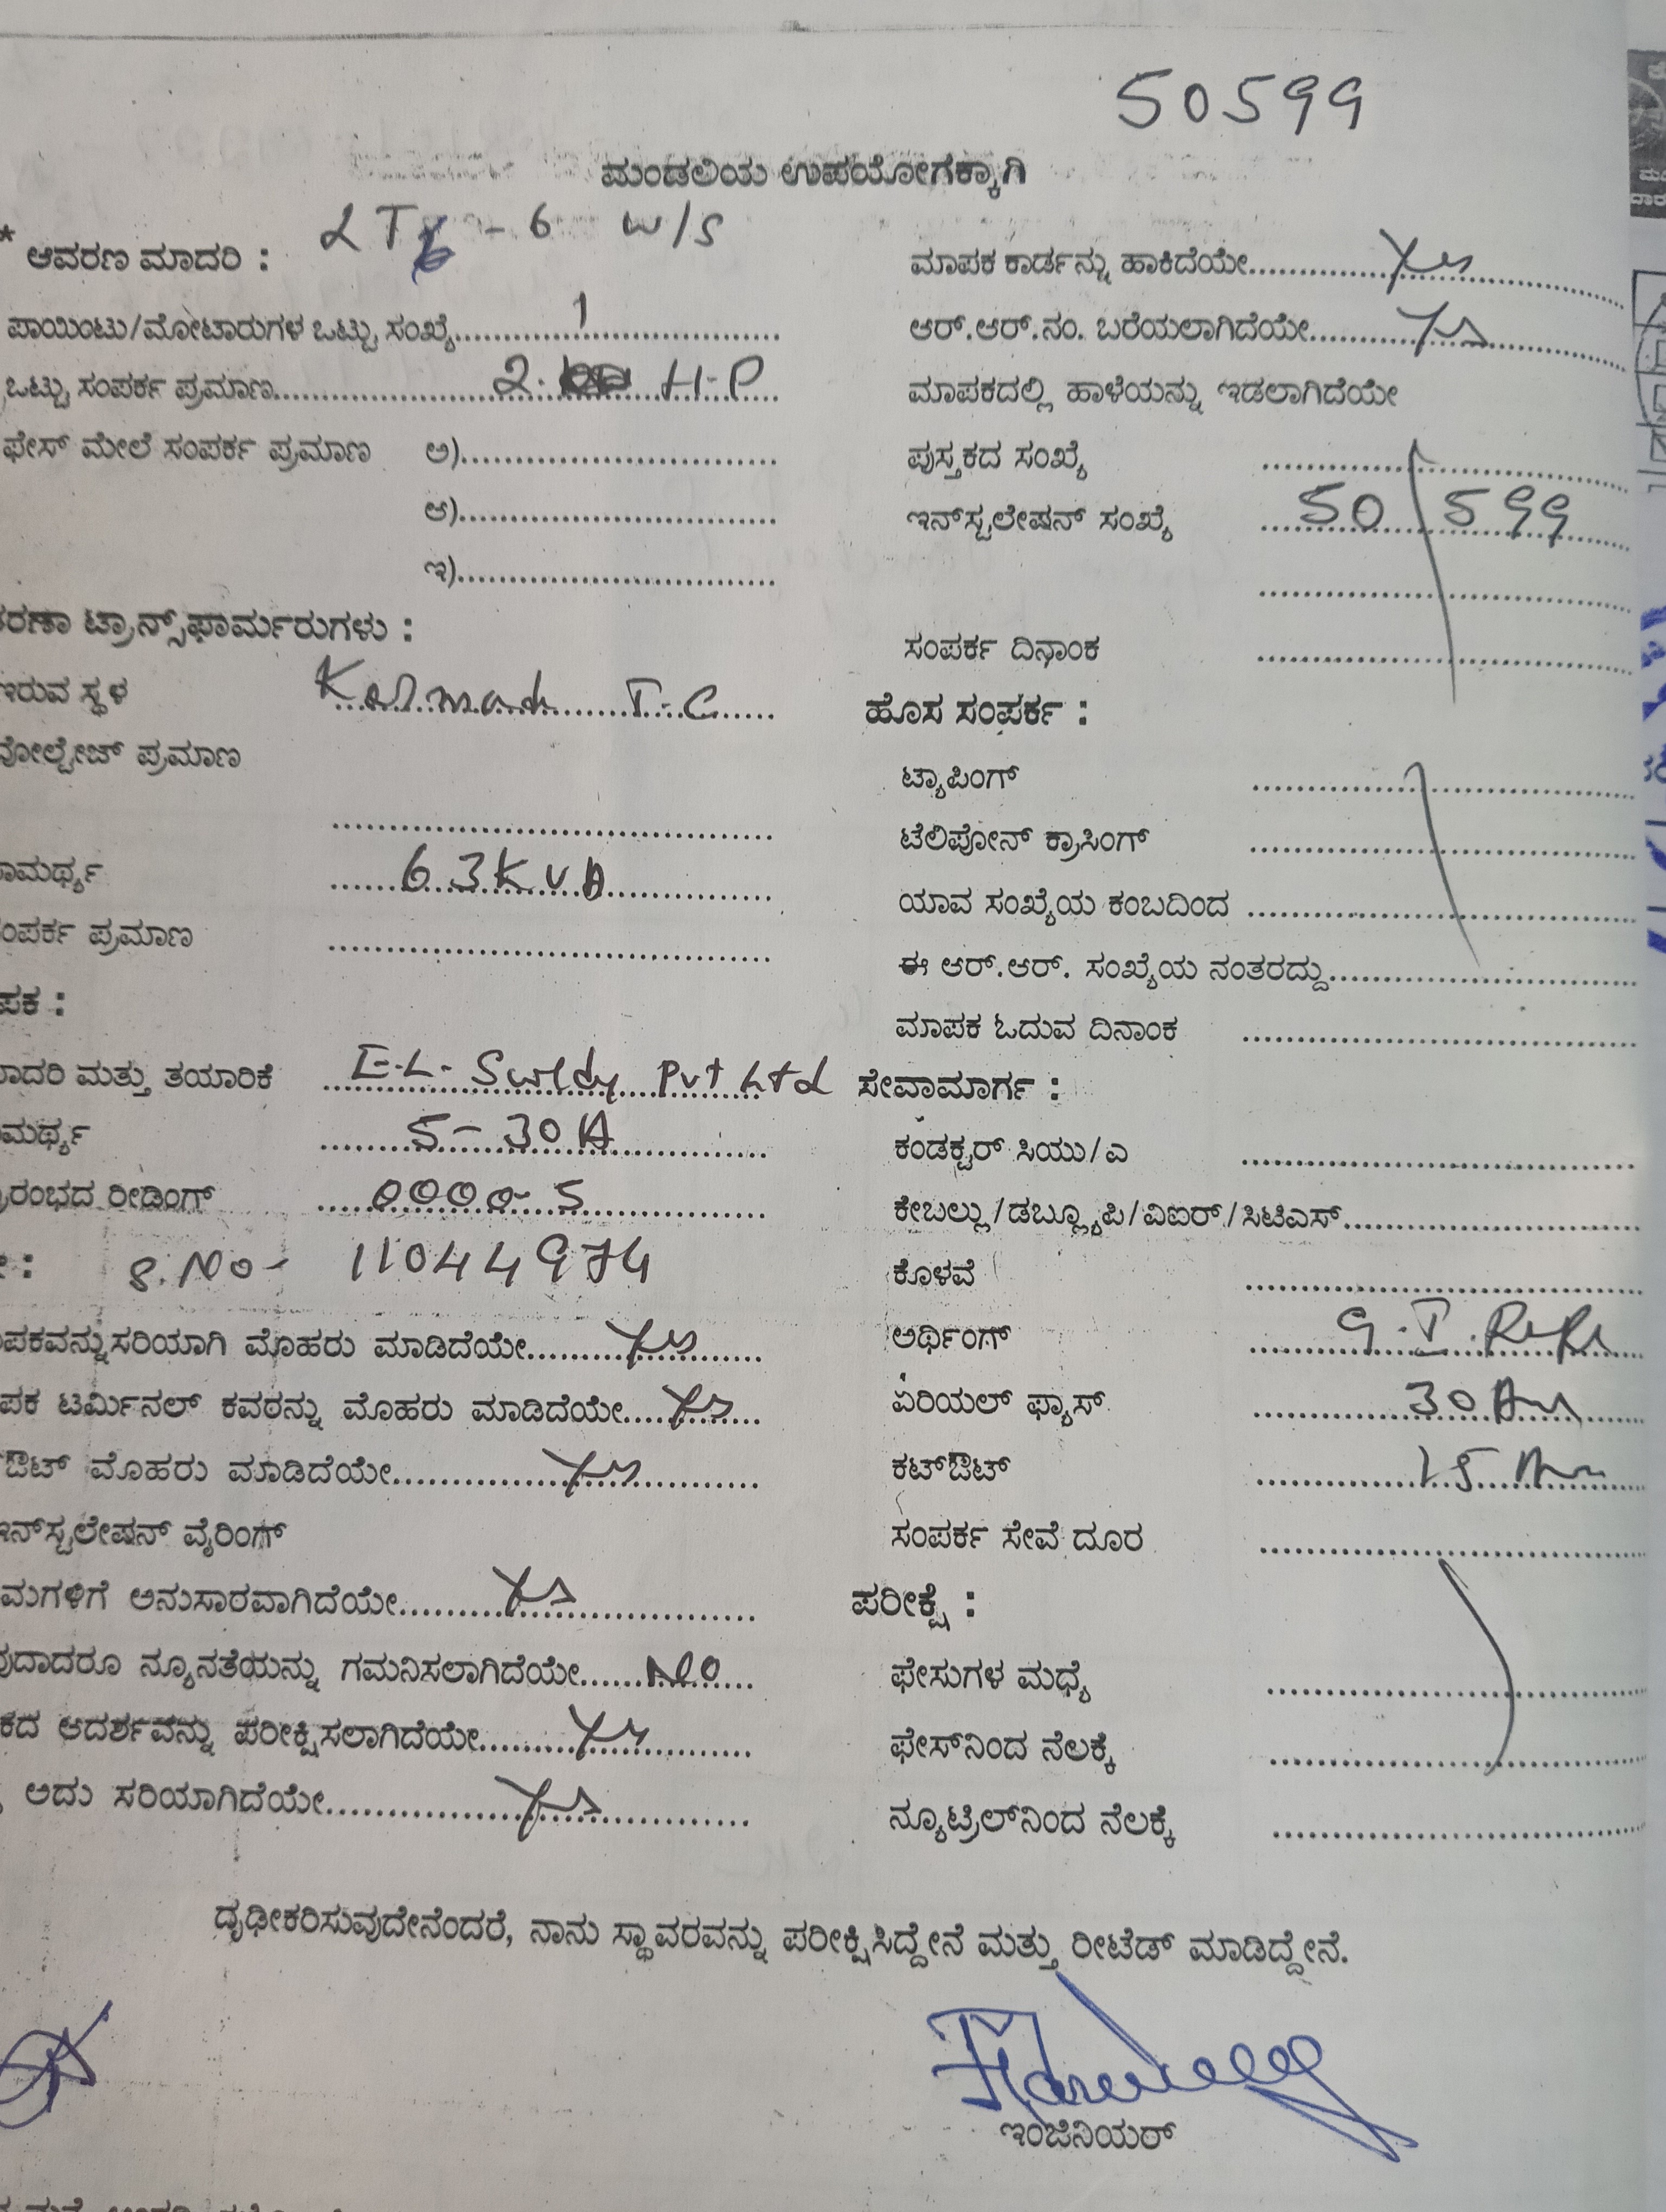 50599
ಮಂಡಲಿಯ ಉಪಯೋಗಕ್ಕಾಗಿ
* ಆವರಣ ಮಾದರಿ : LT6 - 6 W/S
ಪಾಯಿಂಟು/ಮೋಟಾರುಗಳ ಒಟ್ಟು ಸಂಖ್ಯೆ.......... 1
ಒಟ್ಟು ಸಂಪರ್ಕ ಪ್ರಮಾಣ.......... 2. H.P
ಫೇಸ್ ಮೇಲೆ ಸಂಪರ್ಕ ಪ್ರಮಾಣ ಅ)..........
ಆ)..........
ಇ)..........
ರಣಾ ಟ್ರಾನ್ಸ್‌ಫಾರ್ಮರುಗಳು :
ಇರುವ ಸ್ಥಳ T.C
ವೋಲ್ಟೇಜ್ ಪ್ರಮಾಣ
..........
ಾಮರ್ಥ್ಯ 63KVA
ಂಪರ್ಕ ಪ್ರಮಾಣ ..........
ಪಕ :
ಾದರಿ ಮತ್ತು ತಯಾರಿಕೆ Pvt Ltd
ಮರ್ಥ್ಯ 5-30A
ರಂಭದ ರೀಡಿಂಗ್ 0000-5
: S.No- 11044974
ಪಕವನ್ನು ಸರಿಯಾಗಿ ಮೊಹರು ಮಾಡಿದೆಯೇ.......... Yes
ಪಕ ಟರ್ಮಿನಲ್ ಕವರನ್ನು ಮೊಹರು ಮಾಡಿದೆಯೇ.......... Yes
ಔಟ್ ಮೊಹರು ಮಾಡಿದೆಯೇ.......... Yes
ಇನ್‌ಸ್ಟಲೇಷನ್ ವೈರಿಂಗ್
ಮಗಳಿಗೆ ಅನುಸಾರವಾಗಿದೆಯೇ.......... Yes
ವುದಾದರೂ ನ್ಯೂನತೆಯನ್ನು ಗಮನಿಸಲಾಗಿದೆಯೇ...... No
ಕದ ಆದರ್ಶವನ್ನು ಪರೀಕ್ಷಿಸಲಾಗಿದೆಯೇ.......... Yes
, ಅದು ಸರಿಯಾಗಿದೆಯೇ.......... Yes
ಮಾಪಕ ಕಾರ್ಡನ್ನು ಹಾಕಿದೆಯೇ.......... Yes
ಆರ್.ಆರ್.ನಂ. ಬರೆಯಲಾಗಿದೆಯೇ.......... Yes
ಮಾಪಕದಲ್ಲಿ ಹಾಳೆಯನ್ನು ಇಡಲಾಗಿದೆಯೇ
ಪುಸ್ತಕದ ಸಂಖ್ಯೆ ..........
ಇನ್‌ಸ್ಟಲೇಷನ್ ಸಂಖ್ಯೆ 50/599
..........
ಸಂಪರ್ಕ ದಿನಾಂಕ ..........
ಹೊಸ ಸಂಪರ್ಕ :
ಟ್ಯಾಪಿಂಗ್ ..........
ಟೆಲಿಪೋನ್ ಕ್ರಾಸಿಂಗ್ ..........
ಯಾವ ಸಂಖ್ಯೆಯ ಕಂಬದಿಂದ ..........
ಈ ಆರ್.ಆರ್. ಸಂಖ್ಯೆಯ ನಂತರದ್ದು..........
ಮಾಪಕ ಓದುವ ದಿನಾಂಕ ..........
ಸೇವಾಮಾರ್ಗ :
ಕಂಡಕ್ಟರ್ ಸಿಯು/ಎ ..........
ಕೇಬಲ್ಲು/ಡಬ್ಲ್ಯೂಪಿ/ವಿಐರ್/ಸಿಟಿಎಸ್..........
ಕೊಳವೆ ..........
ಅರ್ಥಿಂಗ್ G.I.
ಏರಿಯಲ್ ಫ್ಯಾಸ್ 30
ಕಟ್‌ಔಟ್ 15
ಸಂಪರ್ಕ ಸೇವೆ ದೂರ ..........
ಪರೀಕ್ಷೆ :
ಫೇಸುಗಳ ಮಧ್ಯೆ ..........
ಫೇಸ್‌ನಿಂದ ನೆಲಕ್ಕೆ ..........
ನ್ಯೂಟ್ರಿಲ್‌ನಿಂದ ನೆಲಕ್ಕೆ ..........
ದೃಢೀಕರಿಸುವುದೇನೆಂದರೆ, ನಾನು ಸ್ಥಾವರವನ್ನು ಪರೀಕ್ಷಿಸಿದ್ದೇನೆ ಮತ್ತು ರೀಟೆಡ್ ಮಾಡಿದ್ದೇನೆ.
ಇಂಜಿನಿಯರ್